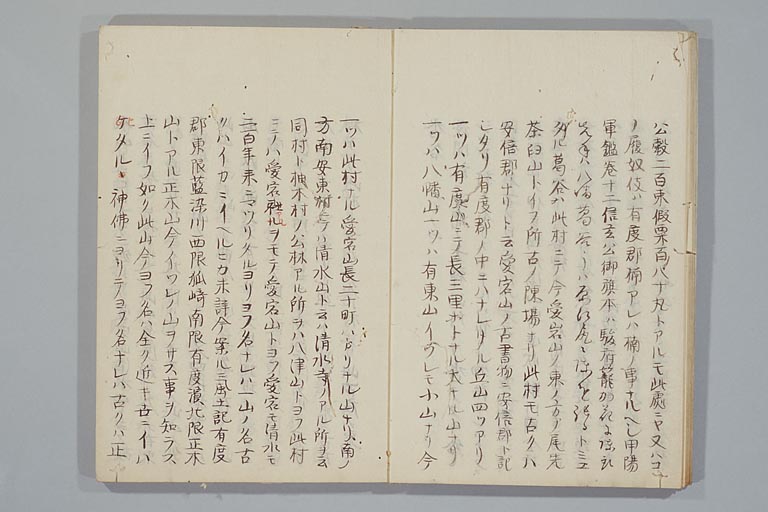 公穀二百束假粟百八十丸トアルモ此處ニヤ又ハコ
ノ履奴伎ハ有度郡楠アレハ楠ノ事ナルヘシ甲陽
軍鑑卷十二信玄公御旗本ハ駿府籠
葛谷ハ此村ニテ今愛宕山ノ東ノ方ノ尾先
茶臼山トイフ所古ノ陳場ナリ此村モ古クハ
安倍郡ナリト云愛宕山ノ古書物ニ安倍郡ト記
シタリ有度郡ノ中ニハナレタル丘山四ツアリ
一ツハ有度山ニテ長三里ホトナル大ナル山ナリ
一ツハ八幡山一ツハ有東山イツレモ小山ナリ今
一ツハ此村ナル愛宕山長二十町ハカリナル山ナリ南ノ
方南安東村今ハ清水山ト云ハ清水寺ノアル所ヲ云
同村ト柚木村ノ公林アル所ヲハ八津山トヨフ此村
ニテハ愛宕社ヲモテ愛宕山トヨフ愛宕モ清水モ
二三百年来ニマツリタルヨリヨフ名ナレハ一山ノ名古
クハイカニイヘルヒカ未詳今案ルニ風土記有度
郡東限藍染川西限狐崎南限有度濱北限正木
山トアル正木山今イツレノ山ヲサス事ヲ知ラス
上ニイフ如ク此山今ヨフ名ハ全ク近キ世ニイハ
ケタル神佛ニヨリテヨフ名ナレハ古クハ正